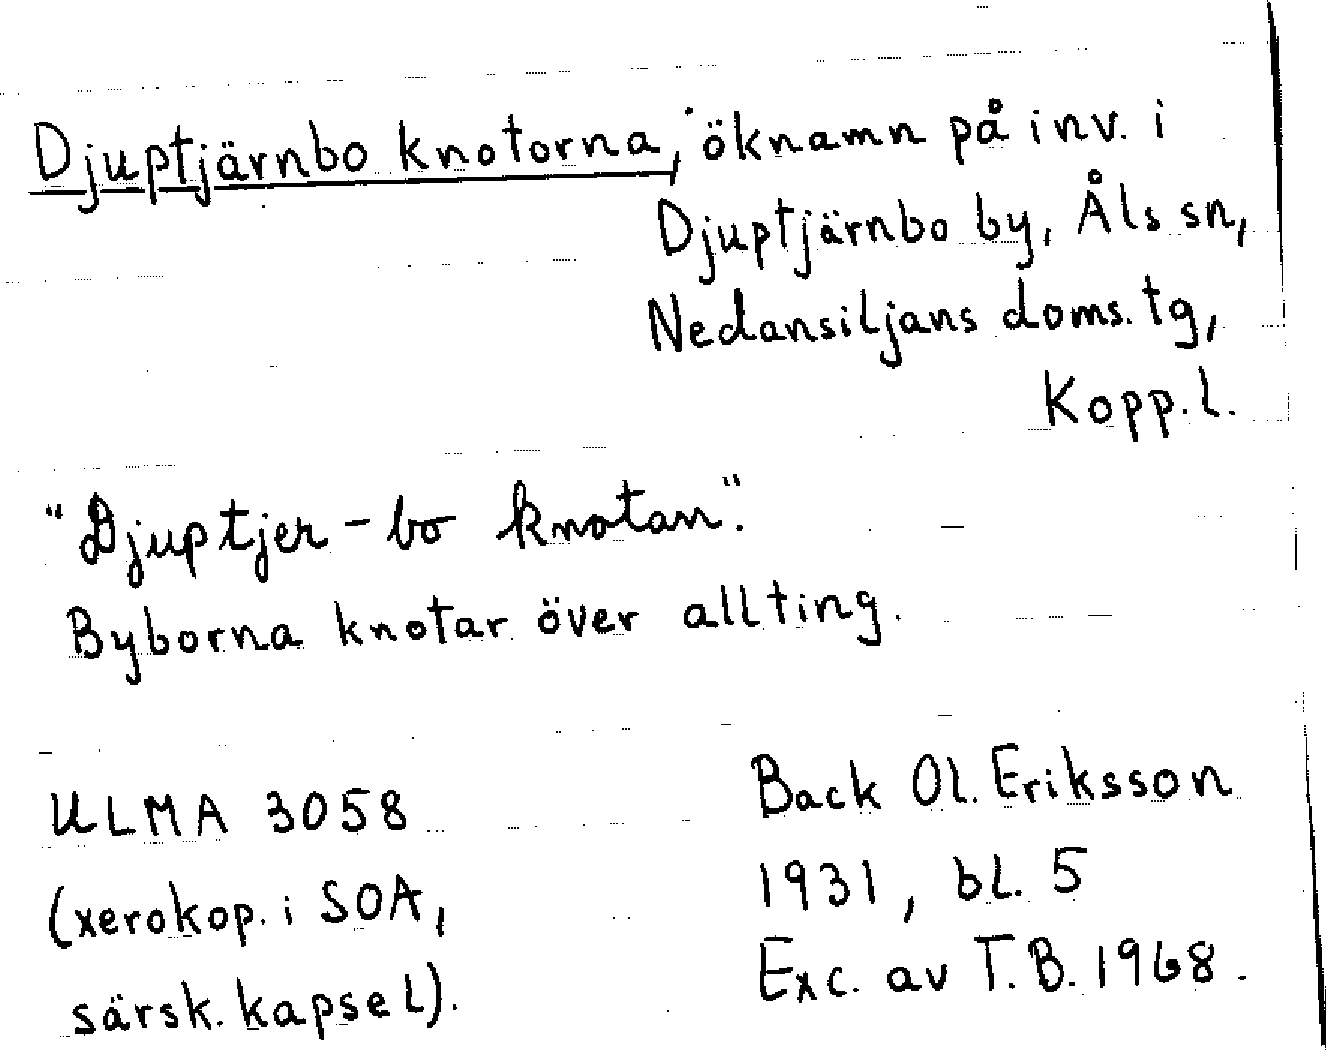 Djuptjärnbo knotorna, öknamn på inv. i
Djuptjärnbo by, Åls sn,
Nedansiljans doms. tg,
Kopp. l.
"Djuptjer-bo knotan".
Byborna knotar över allting.
ULMA 3058
(xerokop. i SOA,
särsk. kapsel).
Back Ol. Eriksson
1931, bl. 5
Exc. av T.B. 1968.